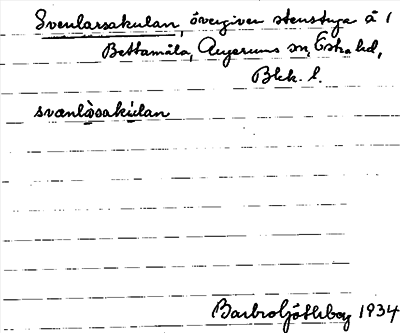 Svenlarsakulan, övergiven stenstuga å 1
Bettamåla, Augerums sn, Östra hd,
Blek. l.
svænlàsakúlan
Barbro Götlsberg 1934